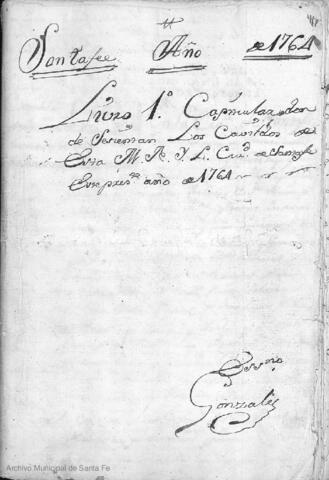 Santafee Año de 1764
Livro 1º Capitular donde
de Screvan Los Cavildos de
Esta M. N. Y L. Ciud. de Santafe
Enpreste año de 1764
Essno
Gonzales
Archivo Municipal de Santa Fe